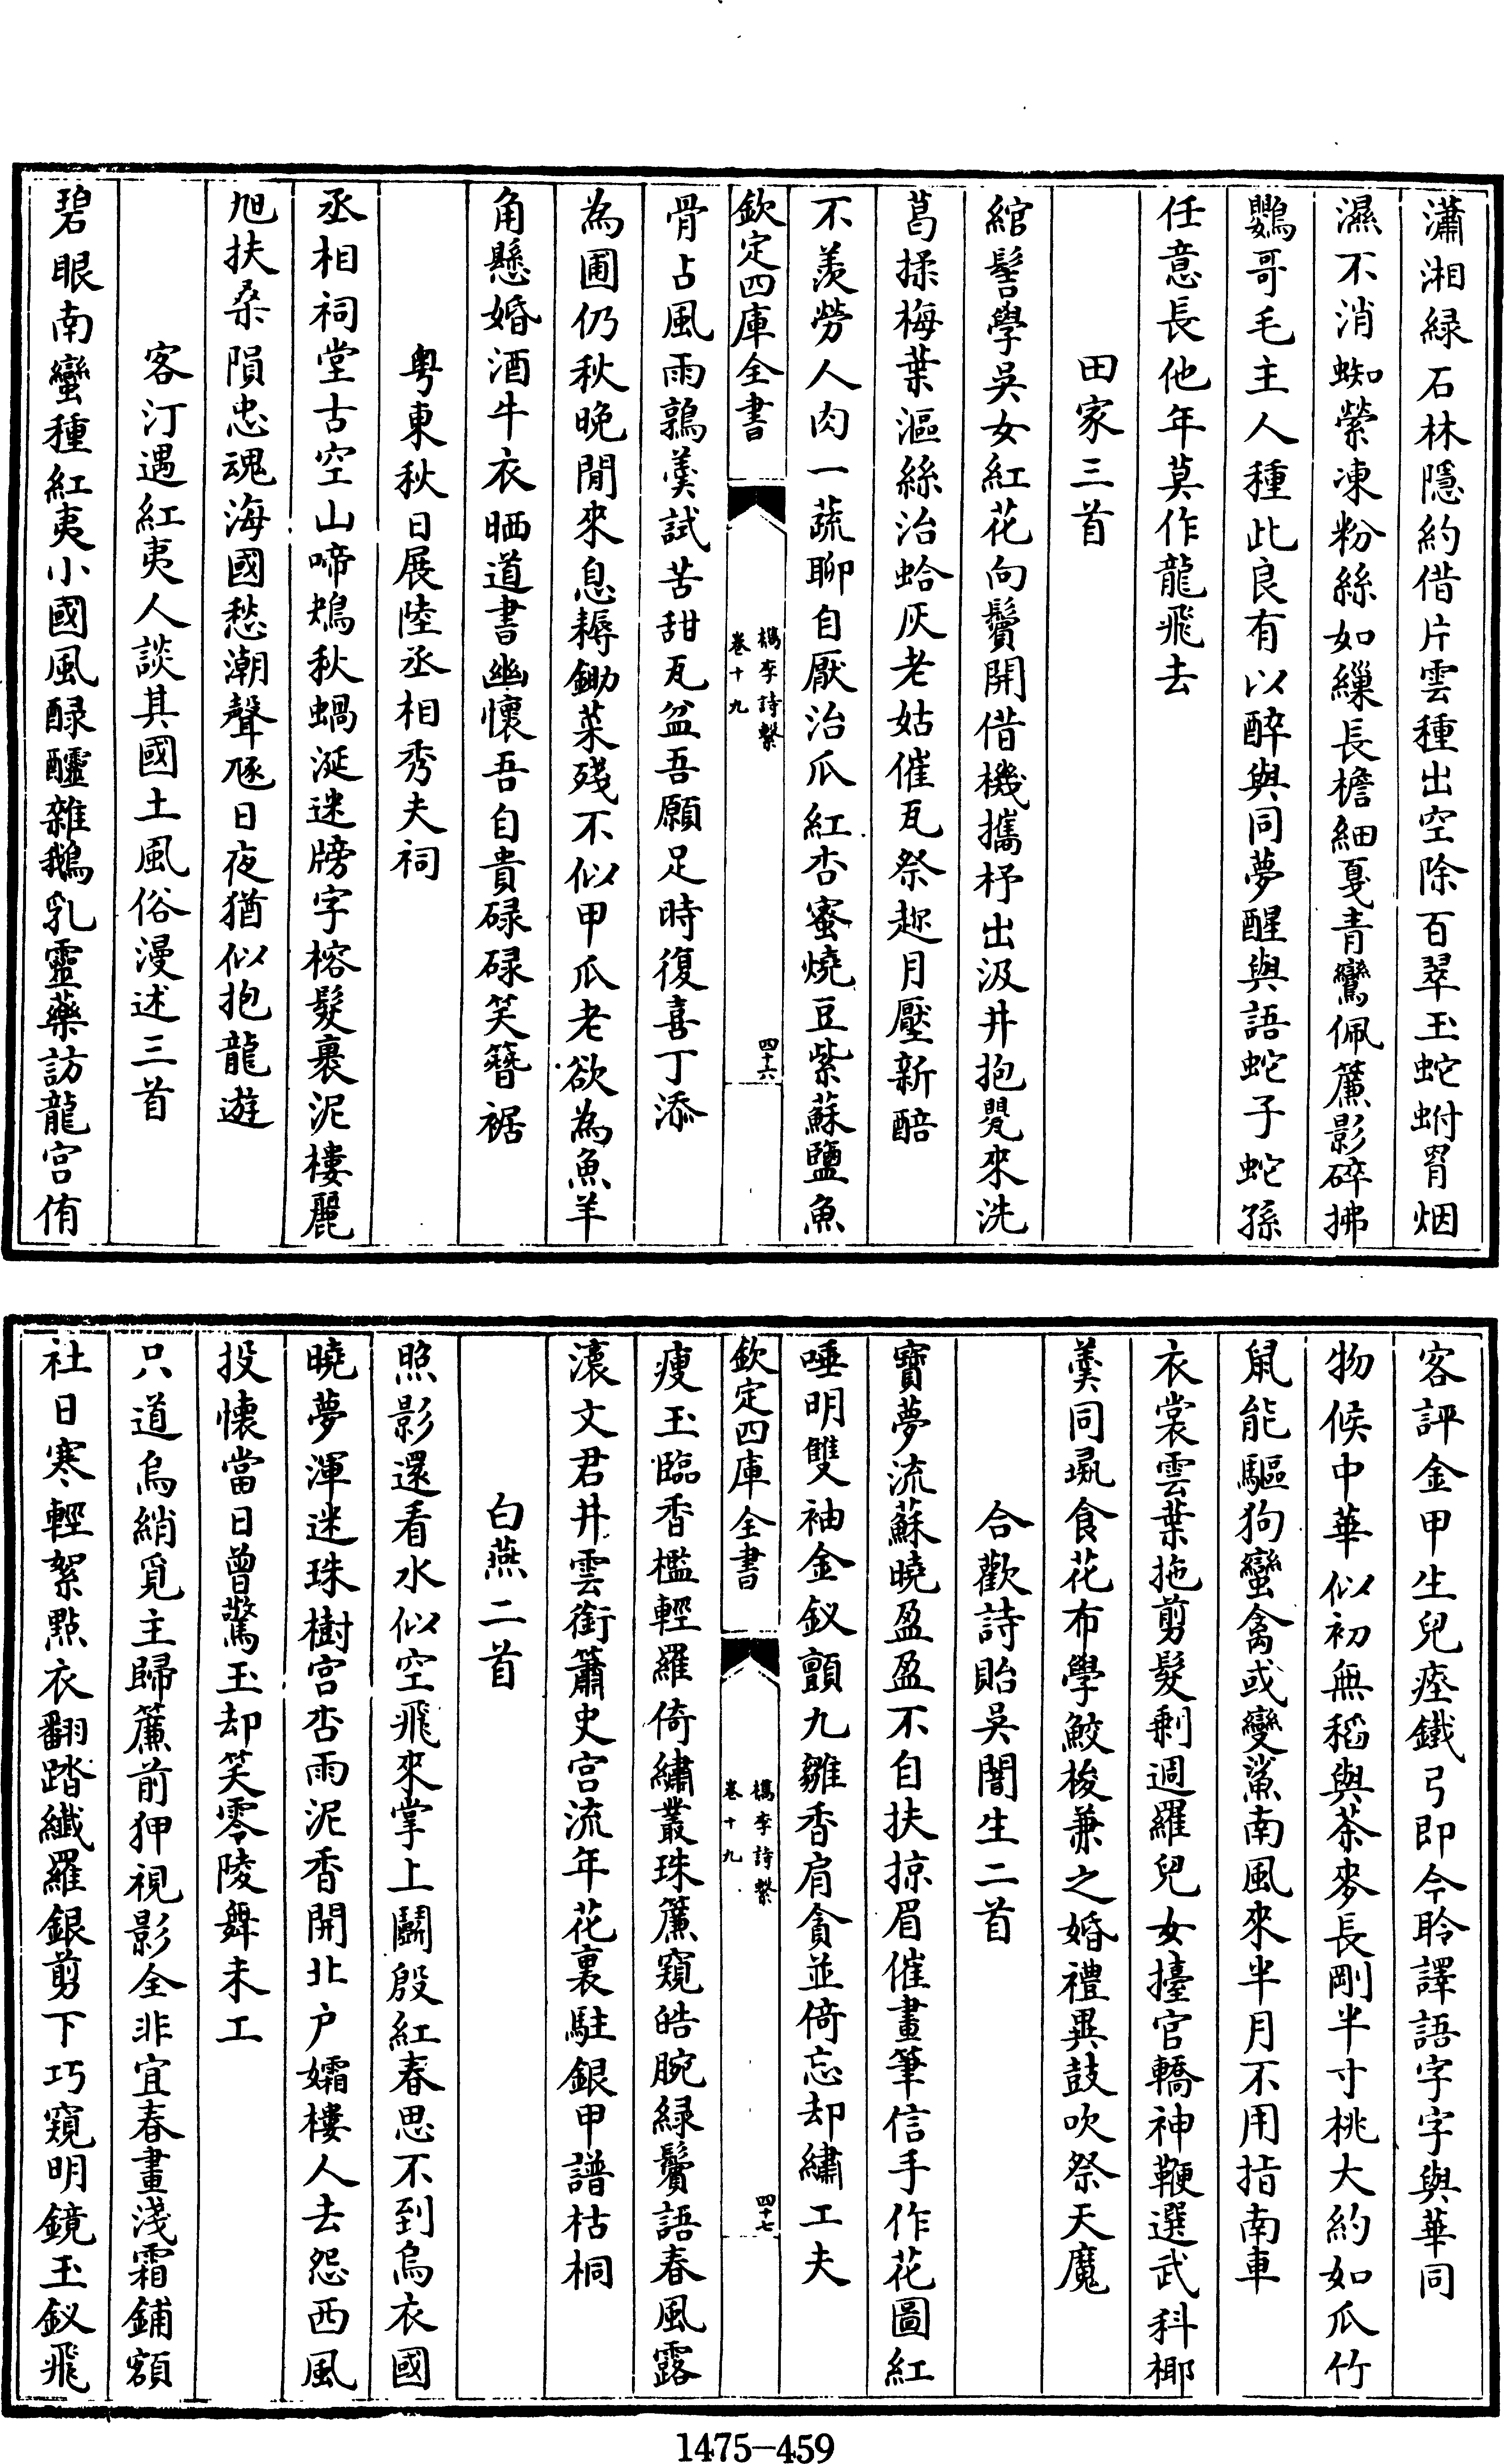 瀟湘緑石林隱約借片雲種出空除百翠玉蛇蚹胃烟
濕不消蜘縈凍粉絲如繅長檐細戛青鸞佩簾影碎拂
鸚哥毛主人種此良有以醉與同夢醒與語蛇子蛇孫
任意長他年莫作龍飛去
田家三首
綰髻學吳女紅花向鬢開借機攜杼出汲井抱甖來洗
葛揉梅葉漚絲治蛤灰老姑催瓦祭趂月壓新醅
不羨勞人肉一蔬聊自厭治瓜紅杏蜜燒豆紫蘇鹽魚
欽定四庫全書
檇李詩繫
卷十九
四十六
骨占風雨鶉羮試苦甜瓦盆吾願足時復喜丁添
為圃仍秋晚閒來息耨鋤菜殘不似甲瓜老欲為魚羊
角懸婚酒牛衣晒道書幽懷吾自貴碌碌笑簪裾
粤東秋日展陸丞相秀夫祠
丞相祠堂古空山啼鴂秋蝸涎迷牓字榕髮裹泥樓麗
旭扶桑隕忠魂海國愁潮聲豗日夜猶似抱龍遊
客汀遇紅夷人談其國土風俗漫述三首
碧眼南蠻種紅夷小國風醁醽雜鵝乳靈藥訪龍宫侑
客評金甲生兒瘞鐵弓即今聆譯語字字與華同
物候中華似初無稻與茶麥長剛半寸桃大約如瓜竹
鼠能驅狗蠻禽或變鯊南風來半月不用指南車
衣裳雲葉拖剪髮剩週羅兒女擡官轎神鞭選武科椰
羮同飙食花布學鮫梭兼之婚禮異鼓吹祭天魔
合歡詩貽吳闇生二首
寶夢流蘇曉盈盈不自扶掠眉催畫筆信手作花圖紅
唾明雙袖金釵顫九雛香肩貪並倚忘却繡工夫
欽定四庫全書
檇李詩繫
卷十九
四十七
瘦玉臨香檻輕羅倚繡叢珠簾窺皓腕緑鬢語春風露
瀼文君井雲銜簫史宫流年花裏駐銀甲譜枯桐
白燕二首
照影還看水似空飛來掌上鬭殷紅春思不到烏衣國
曉夢渾迷珠樹宫杏雨泥香開北户孀樓人去怨西風
投懷當日曾驚玉却笑零陵舞未工
只道烏綃覓主歸簾前狎視影全非宜春畫淺霜鋪額
社日寒輕絮點衣翻踏纖羅銀剪下巧窺明鏡玉釵飛
1475-459